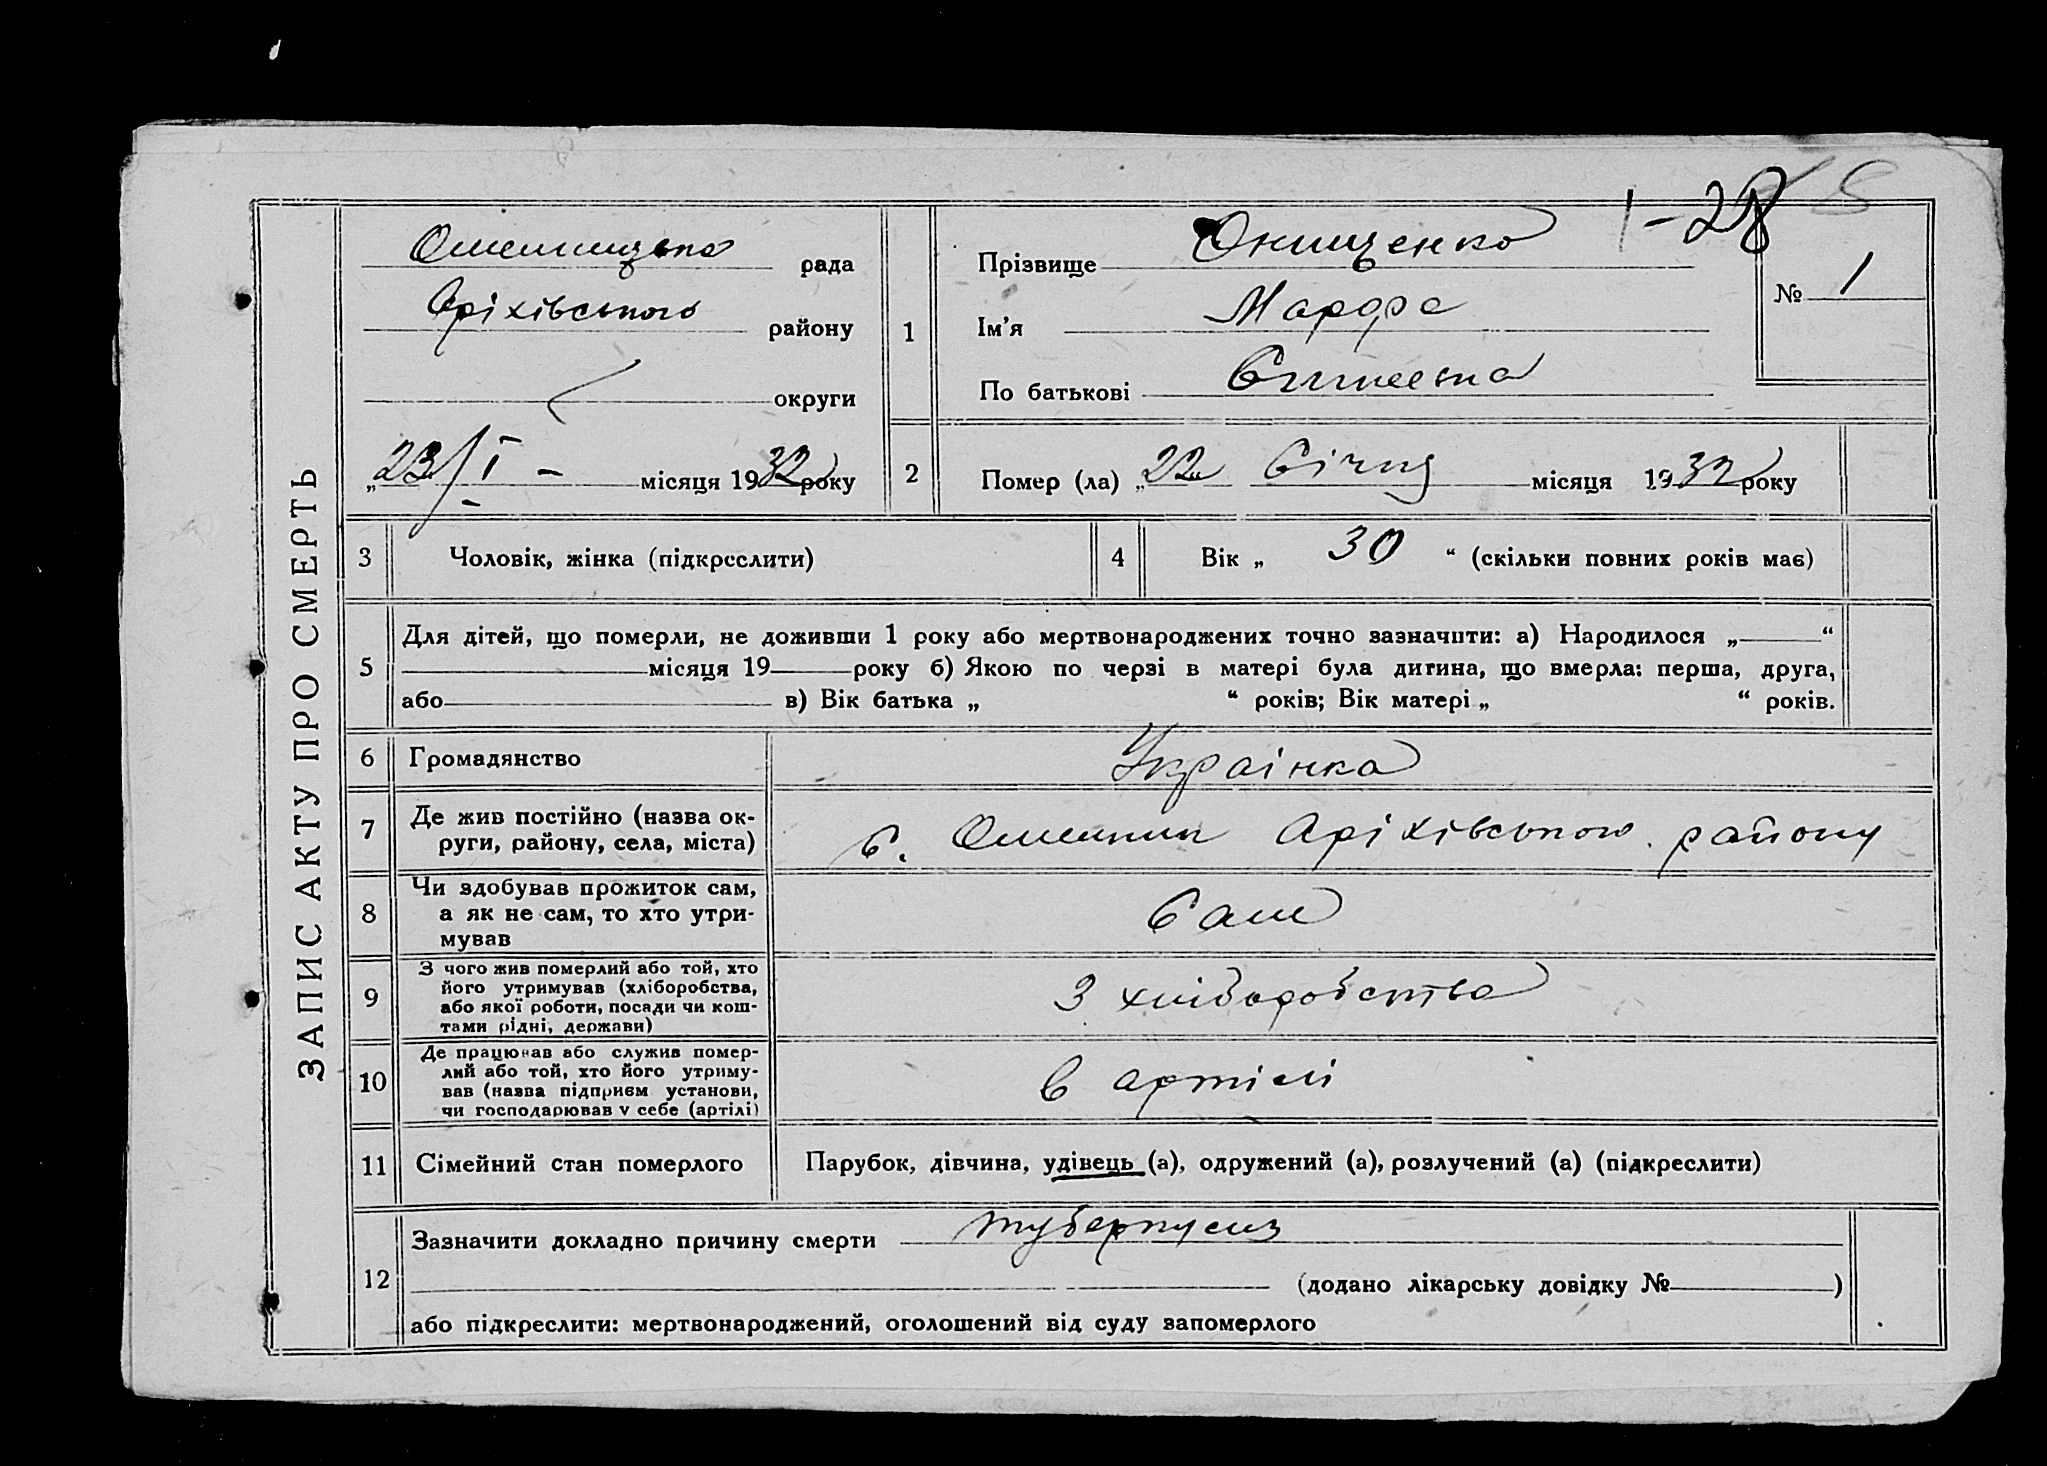 ЗАПИС АКТУ ПРО СМЕРТЬ
1-28
Омельницька рада
Аріхівського району
округи
„23/I - місяця 1932 року
1
Прізвище Онищенко
Ім’я Марфа
По батькові
№ 1
2
Помер (ла) „22 Січня місяця 1932 року
3
Чоловік, жінка (підкреслити)
4
Вік „ 30 “ (скільки повних років має)
5
Для дітей, що померли, не доживши 1 року або мертвонароджених точно зазначити: а) Народилося „ “
місяця 19 року б) Якою по черзі в матері була дитина, що вмерла: перша, друга,
або в) Вік батька „ “ років; Вік матері „ “ років.
6
Громадянство Украінка
7
Де жив постійно (назва ок-
руги, району, села, міста)
с. Омельник Аріхівського району
8
Чи здобував прожиток сам,
а як не сам, то хто утри-
мував
Сам
9
З чого жив померлий або той, хто
його утримував (хліборобства,
або якої роботи, посади чи кош-
тами рідні, держави)
З хліборобства
10
Де працював або служив помер-
лий або той, хто його утриму-
вав (назва підприєм установи,
чи господарював у себе (артілі)
в артілі
11
Сімейний стан померлого
Парубок, дівчина, удівець (а), одружений (а), розлучений (а) (підкреслити)
12
Зазначити докладно причину смерти туберкульз
(додано лікарську довідку № )
або підкреслити: мертвонароджений, оголошений від суду запомерлого